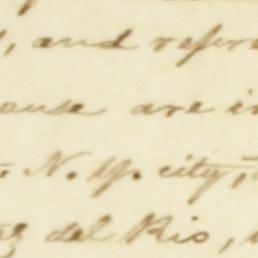 , and refere
ause are in
. N. Y. city,
del Rio,